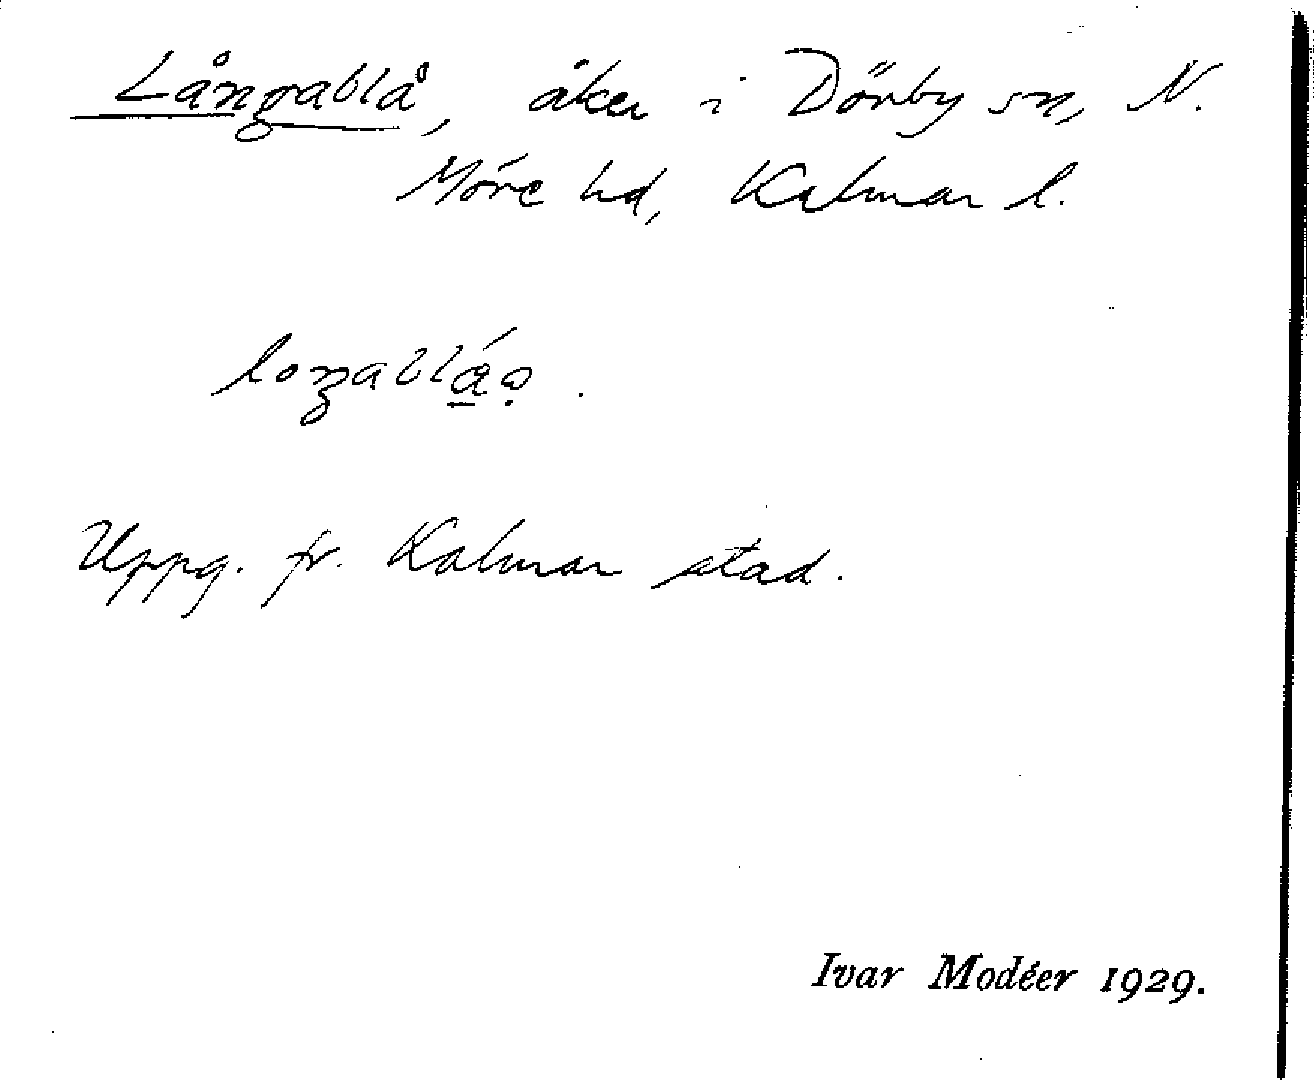 Långablå, åker i Dörby sn, N.
Möre hd, Kalmar l.
Uppg. fr. Kalmar stad.
Ivar Modéer 1929.